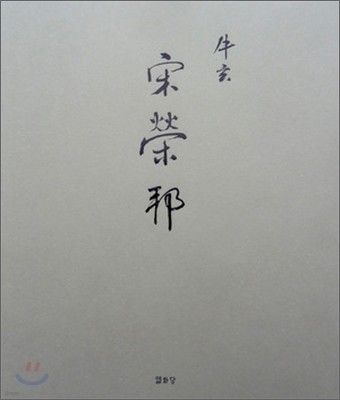 牛玄
宋榮邦
열화당